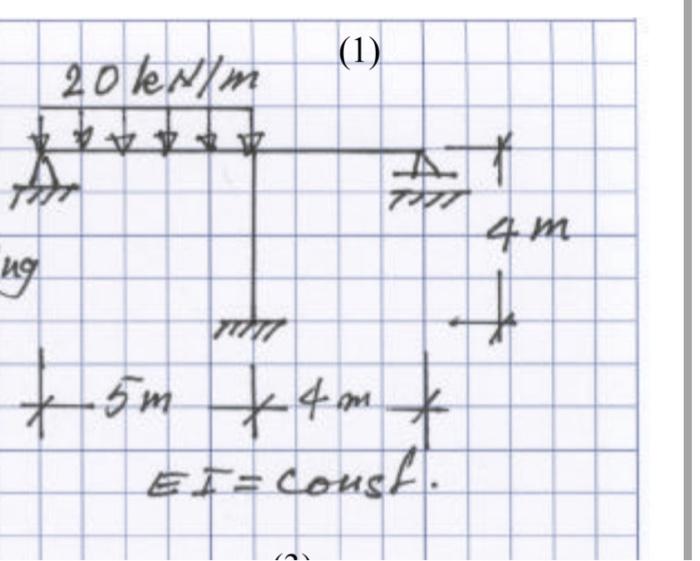 (1)
20 kN/m
4 m
5 m
4 m
EI = const.